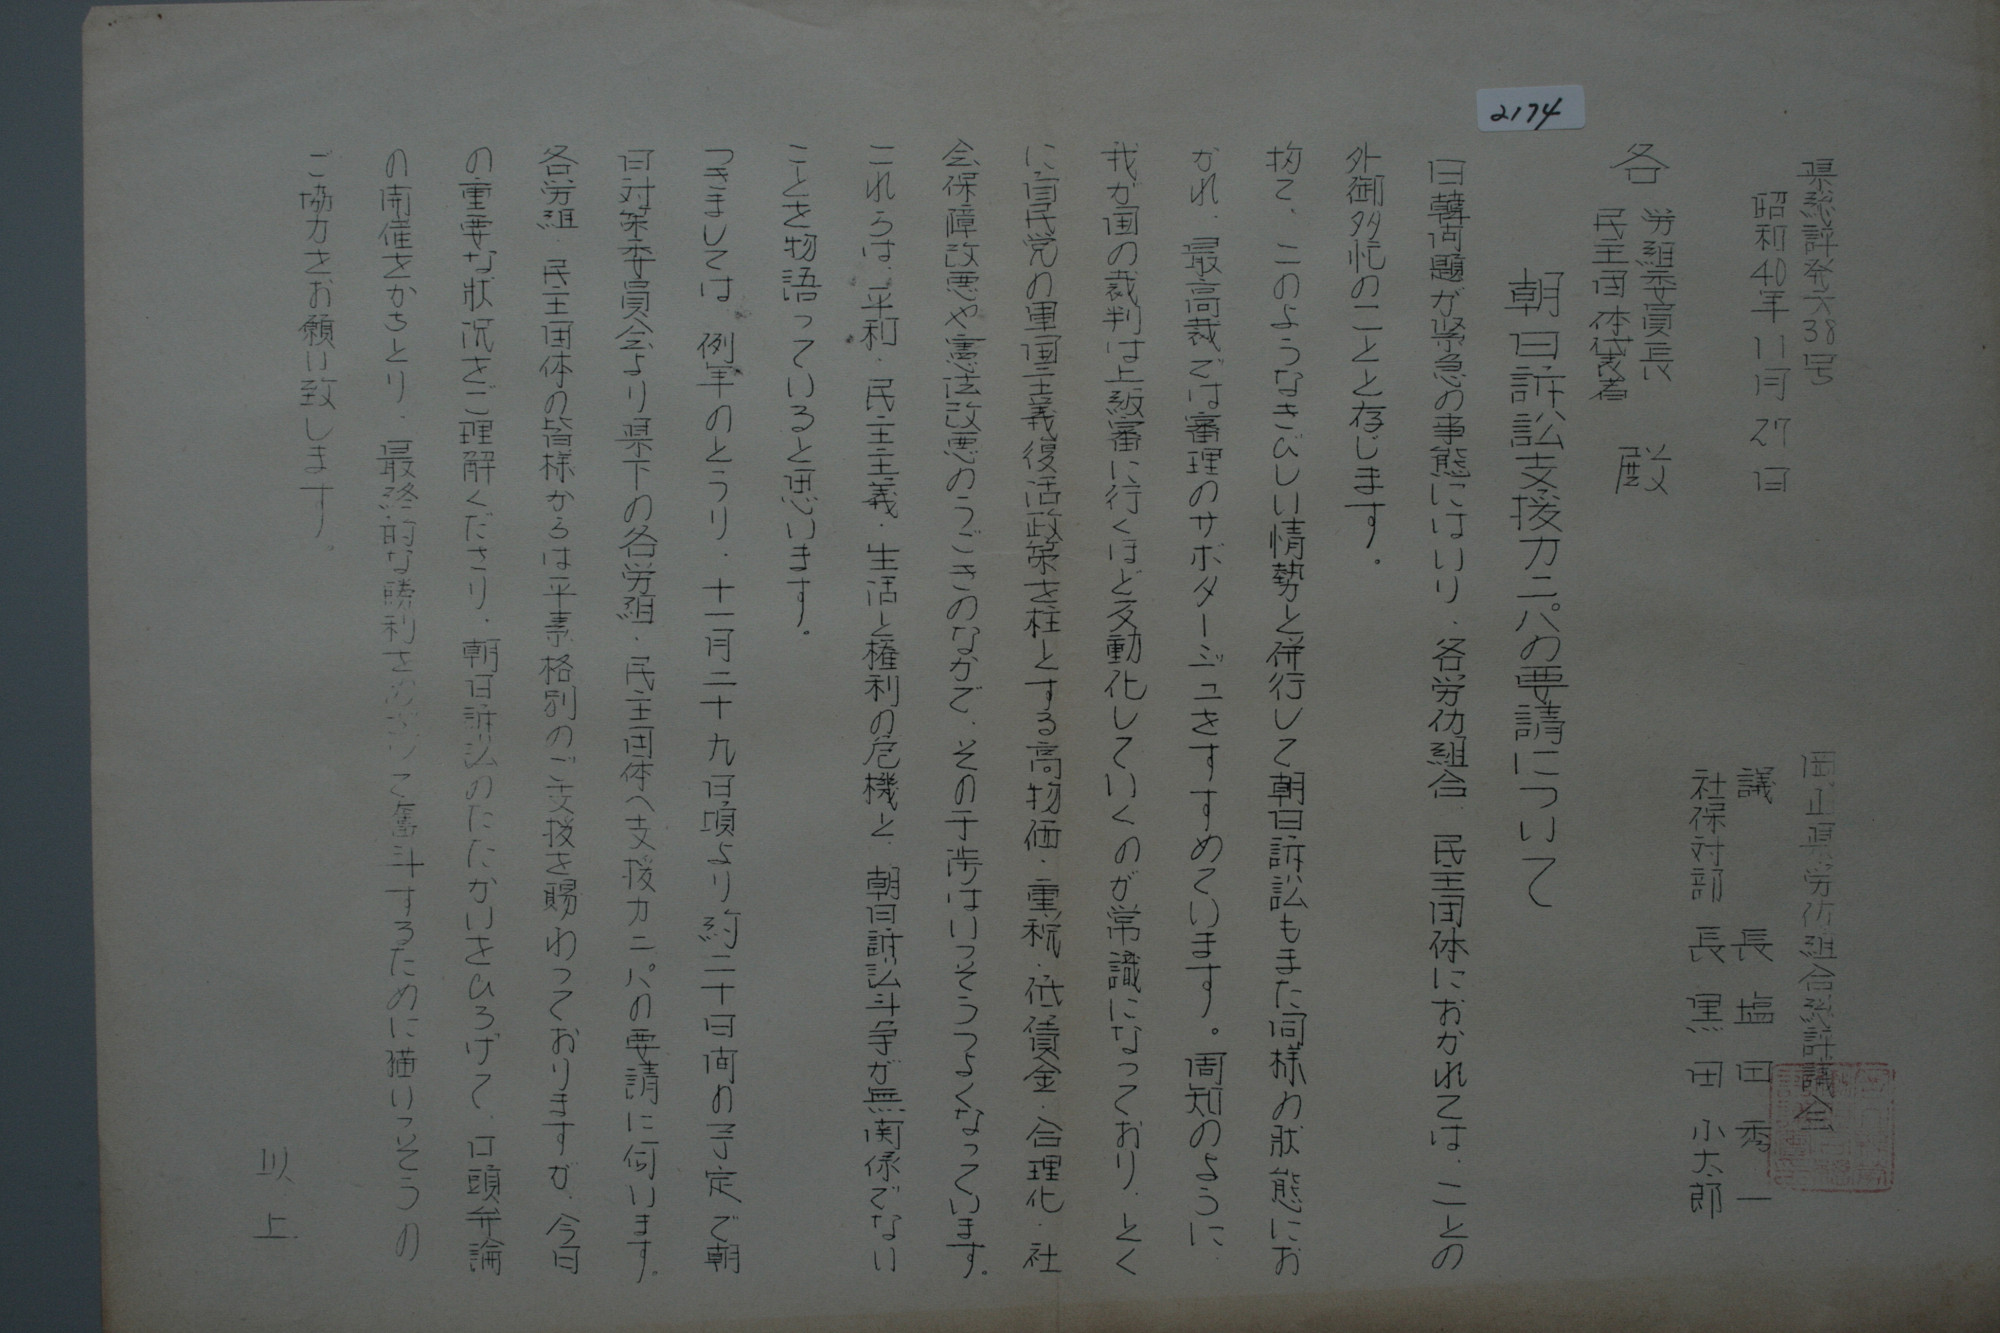 2174
県総評発六38号
昭和40年11月27日
岡山県労仂組合総評議会
議長 塩田秀一
社保対部長 黒田小太郎
各 労組委員長
民主団体代表者 殿
朝日訴訟支援カンパの要請について
日韓問題が緊急の事態にはいり、各労仂組合、民主団体におかれては、ことの
外御多忙のことと存じます。
扨て、このようなきびしい情勢と併行して朝日訴訟もまた同様の状態にお
かれ、最高裁では審理のサボタージュをすすめています。周知のように、
我が国の裁判は上級審に行くほど反動化していくのが常識になっており、とく
に自民党の軍国主義復活政策を柱とする高物価・重税・低賃金・合理化・社
会保障改悪や憲法改悪のうごきのなかで、その干渉はいっそうつよくなっています。
これらは、平和・民主主義・生活と権利の危機と、朝日訴訟斗争が無関係でない
ことを物語っていると思います。
つきましては、例年のとうり、十一月二十九日頃より約二十日間の予定で朝
日対策委員会より県下の各労組・民主団体へ支援カンパの要請に伺います。
各労組・民主団体の皆様からは平素格別のご支援を賜わっておりますが、今日
の重要な状況をご理解くださり、朝日訴訟のたたかいをひろげて、口頭弁論
の開催をかちとり、最終的な勝利をめざして奮斗するために猶いっそうの
ご協力をお願い致します。
以上